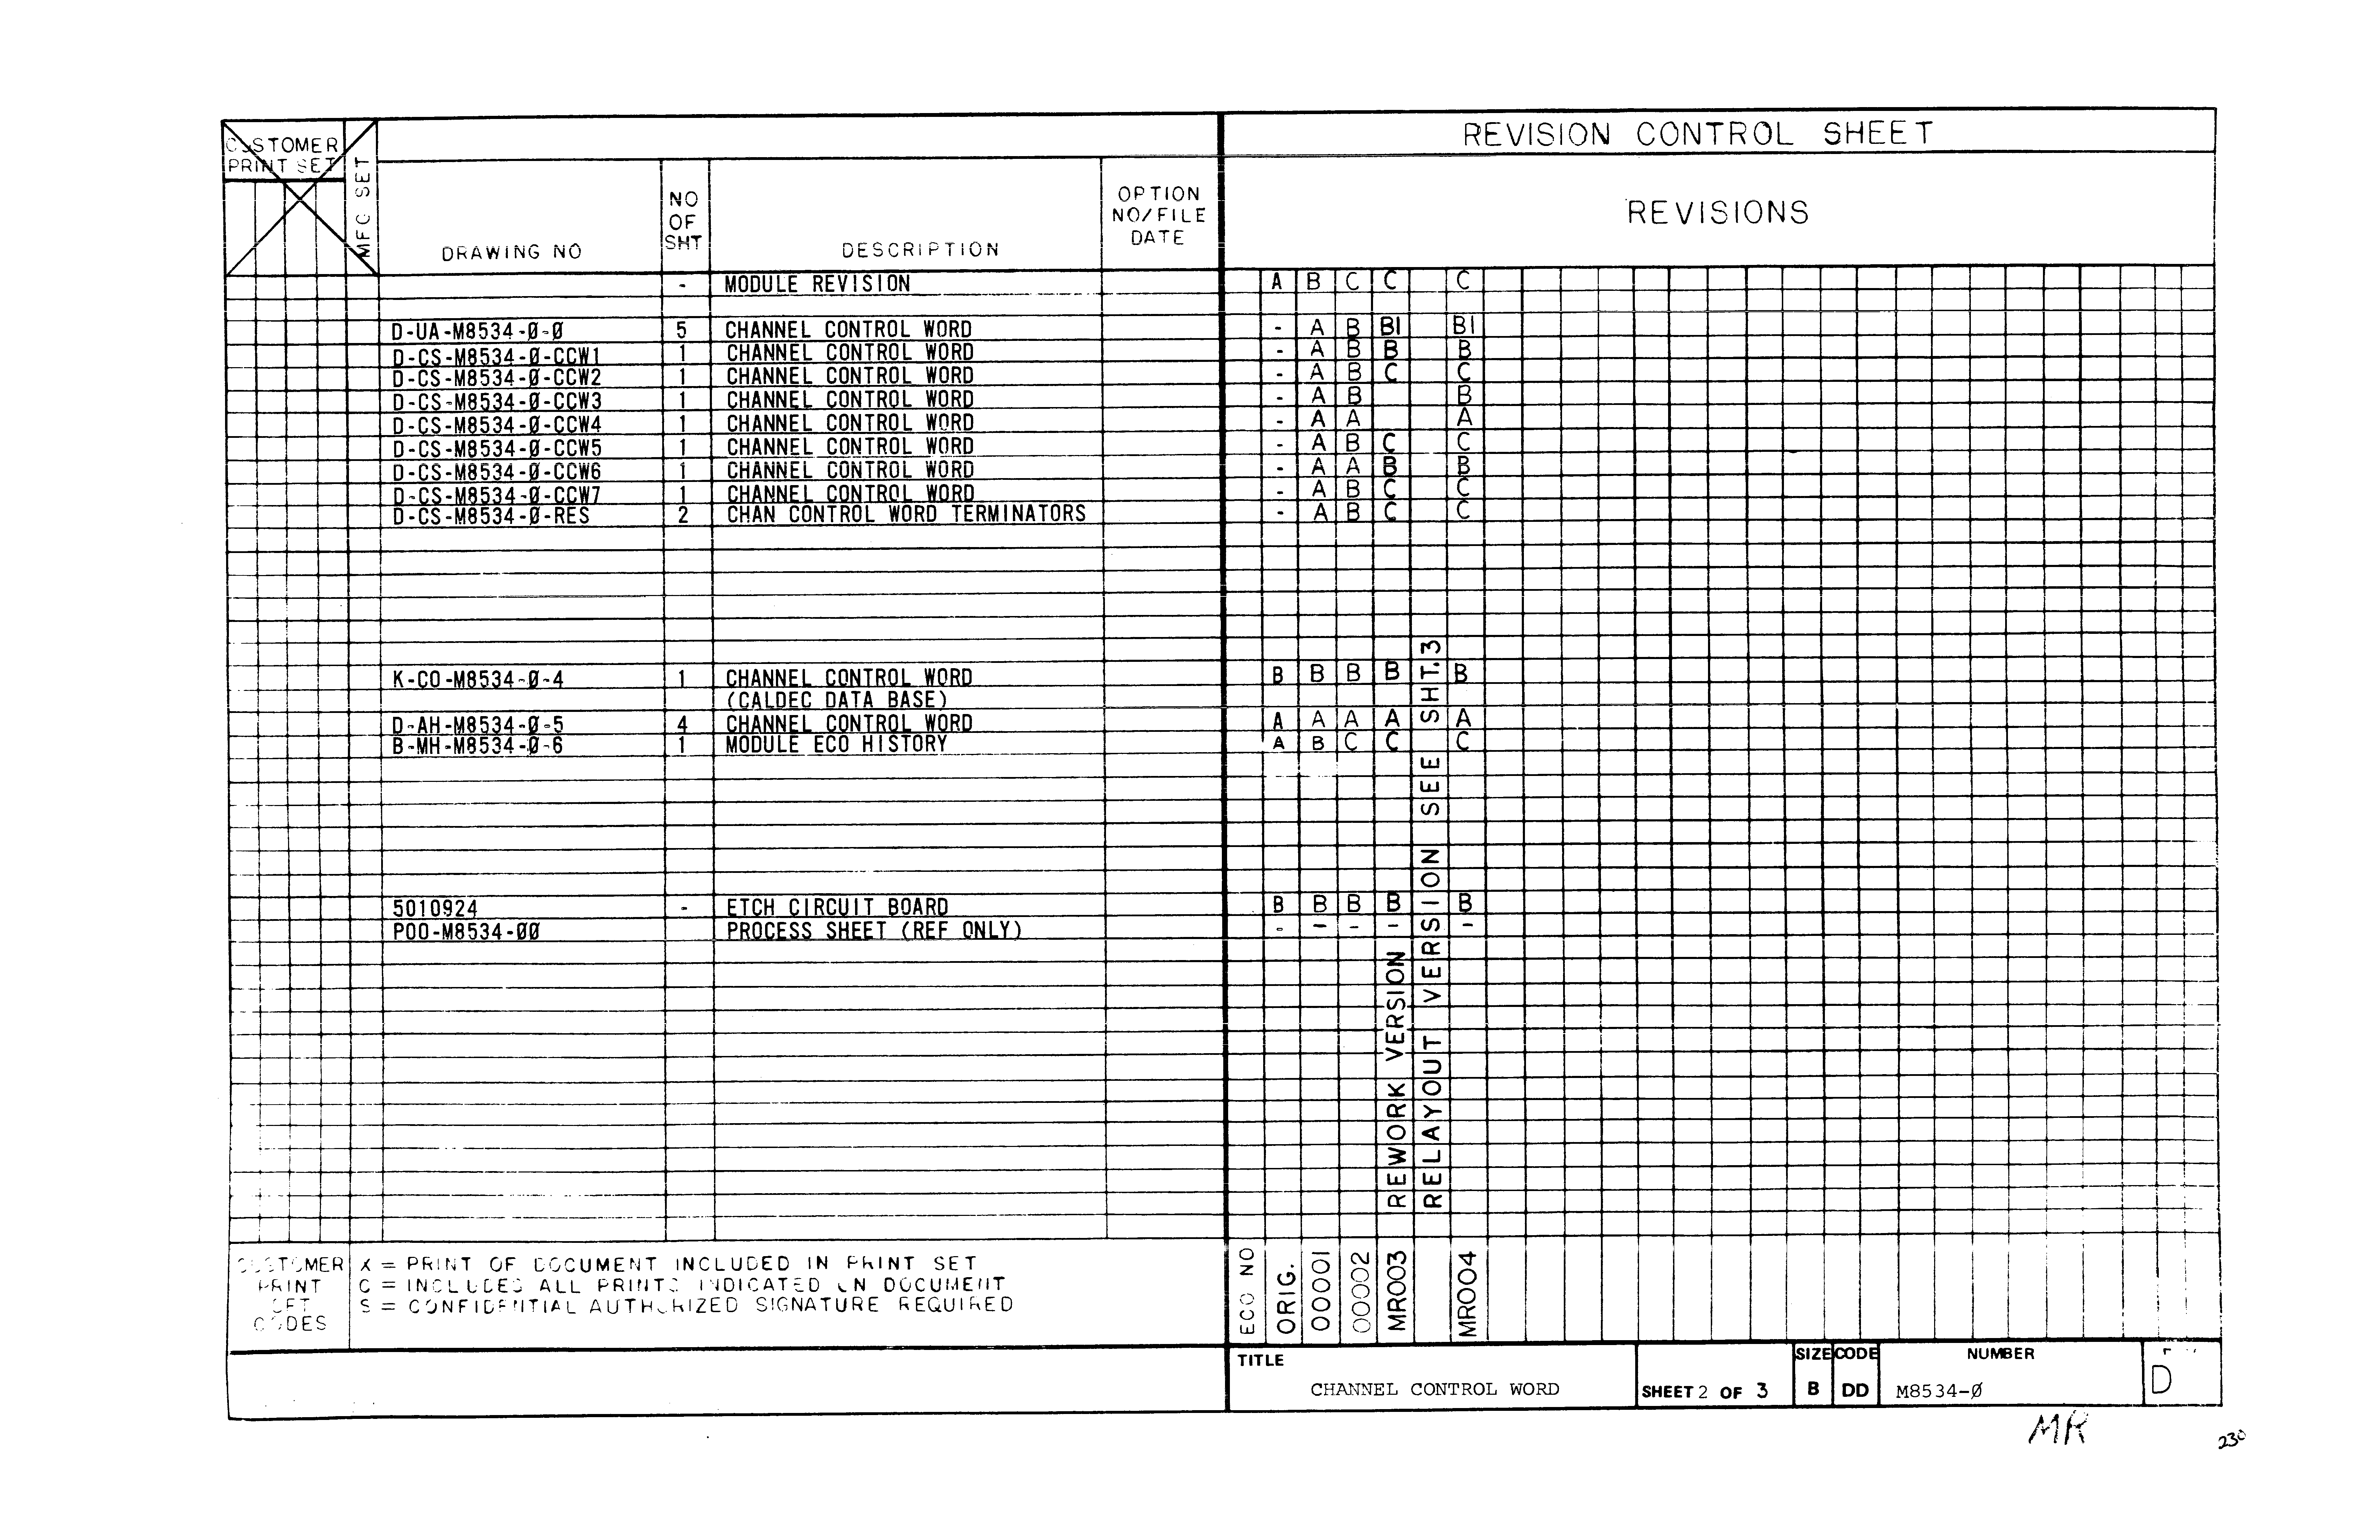 REVISION CONTROL SHEET
CUSTOMER
PRINT SET
MFG SET
DRAWING NO
NO
OF
SHT
DESCRIPTION
OPTION
NO/FILE
DATE
REVISIONS
- MODULE REVISION A B C C C
D-UA-M8534-Ø-Ø 5 CHANNEL CONTROL WORD - A B B1 B1
D-CS-M8534-Ø-CCW1 1 CHANNEL CONTROL WORD - A B B B
D-CS-M8534-Ø-CCW2 1 CHANNEL CONTROL WORD - A B C C
D-CS-M8534-Ø-CCW3 1 CHANNEL CONTROL WORD - A B B
D-CS-M8534-Ø-CCW4 1 CHANNEL CONTROL WORD - A A A
D-CS-M8534-Ø-CCW5 1 CHANNEL CONTROL WORD - A B C C
D-CS-M8534-Ø-CCW6 1 CHANNEL CONTROL WORD - A A B B
D-CS-M8534-Ø-CCW7 1 CHANNEL CONTROL WORD - A B C C
D-CS-M8534-Ø-RES 2 CHAN CONTROL WORD TERMINATORS - A B C C
K-CO-M8534-Ø-4 1 CHANNEL CONTROL WORD B B B B B
(CALDEC DATA BASE)
D-AH-M8534-Ø-5 4 CHANNEL CONTROL WORD A A A A A
B-MH-M8534-Ø-6 1 MODULE ECO HISTORY A B C C C
5010924 - ETCH CIRCUIT BOARD B B B B B
P00-M8534-ØØ PROCESS SHEET (REF ONLY) - - - - -
REWORK VERSION
RELAYOUT VERSION SEE SHT.3
CUSTOMER
PRINT
SET
CODES
X = PRINT OF DOCUMENT INCLUDED IN PRINT SET
C = INCLUDES ALL PRINTS INDICATED ON DOCUMENT
S = CONFIDENTIAL AUTHORIZED SIGNATURE REQUIRED
ECO NO
ORIG.
00001
00002
MR003
MR004
TITLE
CHANNEL CONTROL WORD
SHEET 2 OF 3
SIZE
B
CODE
DD
NUMBER
M8534-Ø
D
MR
230